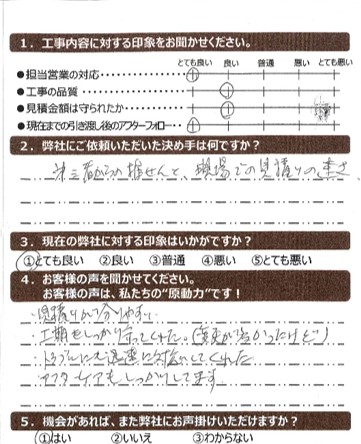 1．工事内容に対する印象をお聞かせください。
とても良い 良い 普通 悪い とても悪い
●担当営業の対応・・・・・・・・・・・・
●工事の品質・・・・・・・・・・・・・・・
●見積金額は守られたか・・・・・・・・
●現在までの引き渡し後のアフターフォロー・・
2．弊社にご依頼いただいた決め手は何ですか？
第三者からの推せんと、現場での見積りの速さ、
3．現在の弊社に対する印象はいかがですか？
①とても良い ②良い ③普通 ④悪い ⑤とても悪い
4．お客様の声を聞かせてください。
お客様の声は、私たちの“原動力”です！
・見積りが分りやすい
・工期もしっかり守ってくれた。（変更が多かったけど）
・トラブルにも迅速に対応してくれた
・アフターケアもしっかりしてます
5．機会があれば、また弊社にお声掛けいただけますか？
①はい ②いいえ ③わからない